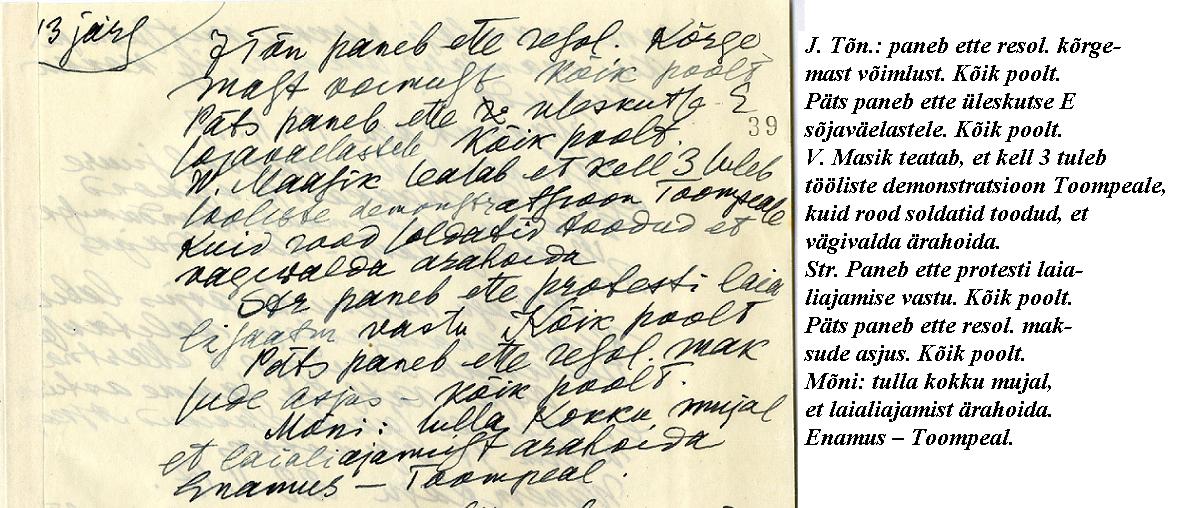 13 järg
J Tõn paneb ette resol. Kõrge
mast voimust Kõik poolt
Päts paneb ette uleskutse E
39
sojavaelastele Kõik poolt.
W. Maasik teatab et kell 3 tuleb
tooliste demonstratsioon Toompeale
Kuid rood soldatid toodud et
vagivalda arahoida
Str paneb ette protesti laia
liajamise vastu Kõik poolt
Päts paneb ette resol. mak
sude asjas – Kõik poolt.
Mõni: tulla Kokku mujal
et laialiajamist arahoida
Enamus – Toompeal.
J. Tõn.: paneb ette resol. kõrge-
mast võimlust. Kõik poolt.
Päts paneb ette üleskutse E
sõjaväelastele. Kõik poolt.
V. Masik teatab, et kell 3 tuleb
tööliste demonstratsioon Toompeale,
kuid rood soldatid toodud, et
vägivalda ärahoida.
Str. Paneb ette protesti laia-
liajamise vastu. Kõik poolt.
Päts paneb ette resol. mak-
sude asjus. Kõik poolt.
Mõni: tulla kokku mujal,
et laialiajamist ärahoida.
Enamus – Toompeal.